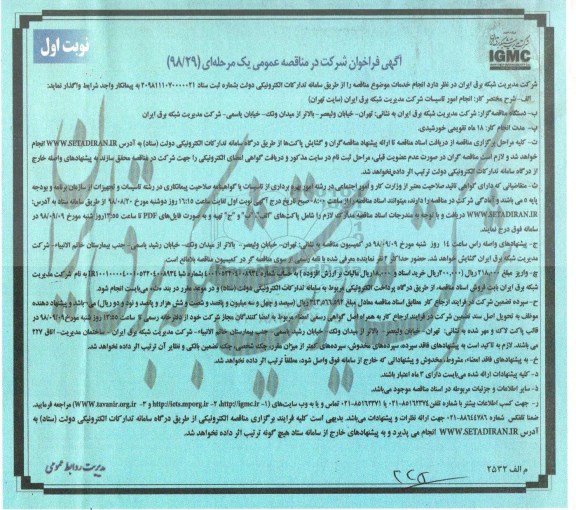 نوبت اول
IGMC
آگهی فراخوان شرکت در مناقصه عمومی یک مرحله‌ای (۹۸/۲۹)
شرکت مدیریت شبکه برق ایران در نظر دارد انجام خدمات موضوع مناقصه را از طریق سامانه تدارکات الکترونیکی دولت بشماره ثبت ستاد ۲۰۹۸۱۱۱۰۷۰۰۰۰۰۲۱ به پیمانکار واجد شرایط واگذار نماید:
الف- شرح مختصر کار: انجام امور تاسیسات شرکت مدیریت شبکه برق ایران (سایت تهران)
ب- دستگاه مناقصه‌گزار: شرکت مدیریت شبکه برق ایران به نشانی: تهران- خیابان ولیعصر- بالاتر از میدان ونک- خیابان یاسمی- شرکت مدیریت شبکه برق ایران
پ- مدت انجام کار: ۱۸ ماه تقویمی خورشیدی.
ت- کلیه مراحل برگزاری مناقصه از دریافت اسناد مناقصه تا ارائه پیشنهاد مناقصه‌گران و گشایش پاکت‌ها از طریق درگاه سامانه تدارکات الکترونیکی دولت (ستاد) به آدرس WWW.SETADIRAN.IR انجام
خواهد شد و لازم است مناقصه گران در صورت عدم عضویت قبلی، مراحل ثبت نام در سایت مذکور و دریافت گواهی امضای الکترونیکی را جهت شرکت در مناقصه محقق سازند به پیشنهادهای واصله خارج
از سامانه تدارکات الکترونیکی دولت ترتیب اثر داده‌نخواهد شد.
ث- متقاضیانی که دارای گواهی تائید صلاحیت معتبر از وزارت کار و امور اجتماعی در رشته امور بهره برداری از تاسیسات یا گواهینامه صلاحیت پیمانکاری در رشته تاسیسات و تجهیزات از سازمان برنامه و بودجه
پایه ۵ می باشند و آمادگی شرکت در مناقصه را دارند، میتوانند اسناد مناقصه را از ساعت ۰۸:۰۰ صبح تاریخ درج آگهی نوبت اول لغایت ساعت ۱۶:۱۵ روز دوشنبه مورخ ۹۸/۰۸/۲۰ از طریق سامانه ستاد به آدرس:
WWW.SETADIRAN.IR دریافت و با توجه به مندرجات اسناد مناقصه مدارک لازم را شامل پاکت‌های "الف"، "ب" و "ج" تهیه و به صورت فایل‌های PDF تا ساعت ۱۳:۵۵ روز شنبه مورخ ۹۸/۰۹/۰۹ در
سامانه فوق درج نمایند.
ج- پیشنهادهای واصله راس ساعت ۱۴ روز شنبه مورخ ۹۸/۰۹/۰۹ در کمیسیون مناقصه به نشانی: تهران- خیابان ولیعصر- بالاتر از میدان ونک- خیابان رشید یاسمی- جنب بیمارستان خاتم الانبیاء- شرکت
مدیریت شبکه برق ایران گشایش خواهد شد. حضور حداکثر یک نفر نماینده معرفی شده با نامه رسمی از سوی مناقصه گر در کمیسیون مناقصه بلامانع است.
شبکه برق ایران بابت فروش اسناد مناقصه، از طریق درگاه پرداخت الکترونیکی مربوط به سامانه تدارکات الکترونیکی دولت (ستاد) و در موعد مقرر در بند «ث» می‌بایست انجام شود.
موظف به تحویل اصل سند تضمین شرکت در فرایند ارجاع کار به همراه اصل گواهی رسمی امضاء مربوط به امضا کنندگان مجاز شرکت خود از دفترخانه رسمی تا ساعت ۱۳:۵۵ روز شنبه مورخ ۹۸/۰۹/۰۹ در
قالب پاکت لاک و مهر شده به نشانی: تهران- خیابان ولیعصر- بالاتر از میدان ونک- خیابان رشید یاسمی- جنب بیمارستان خاتم الانبیاء- شرکت مدیریت شبکه برق ایران- ساختمان مدیریت- اتاق ۲۲۷
می باشند. لازم به تاکید است به پیشنهادهای فاقد سپرده، سپرده‌های مخدوش، سپرده‌های کمتر از میزان مقرر، چک شخصی، چک تضمین بانکی و نظایر آن ترتیب اثر داده نخواهد شد.
خ- به پیشنهادهای فاقد امضاء، مشروط، مخدوش و پیشنهاداتی که خارج از سامانه فوق واصل شود، مطلقاً ترتیب اثر داده نخواهد شد.
د- کلیه پیشنهادات ارائه شده می‌بایست دارای ۳ ماه اعتبار باشند.
ذ- سایر اطلاعات و جزئیات مربوطه در اسناد مناقصه موجود می‌باشد.
ر- جهت کسب اطلاعات بیشتر با شماره تلفن ۸۵۱۶۲۳۷۴-۰۲۱ یا ۸۵۱۶۲۳۷۱-۰۲۱ تماس و یا به وب سایت‌های (۱- http://igmc.ir، ۲- http://iets.mporg.ir و ۳- WWW.tavanir.org.ir) مراجعه فرمایید.
ضمنا تلفکس شماره ۸۸۶۴۴۷۸۶-۰۲۱ جهت ارائه نظرات و پیشنهادات می‌باشد. بدیهی است کلیه فرایند برگزاری مناقصه الکترونیکی از طریق درگاه سامانه تدارکات الکترونیکی دولت (ستاد) به
آدرس WWW.SETADIRAN.IR انجام می پذیرد و به پیشنهادهای خارج از سامانه ستاد هیچ گونه ترتیب اثر داده نخواهد شد.
م الف ۲۵۳۲
مدیریت روابط عمومی